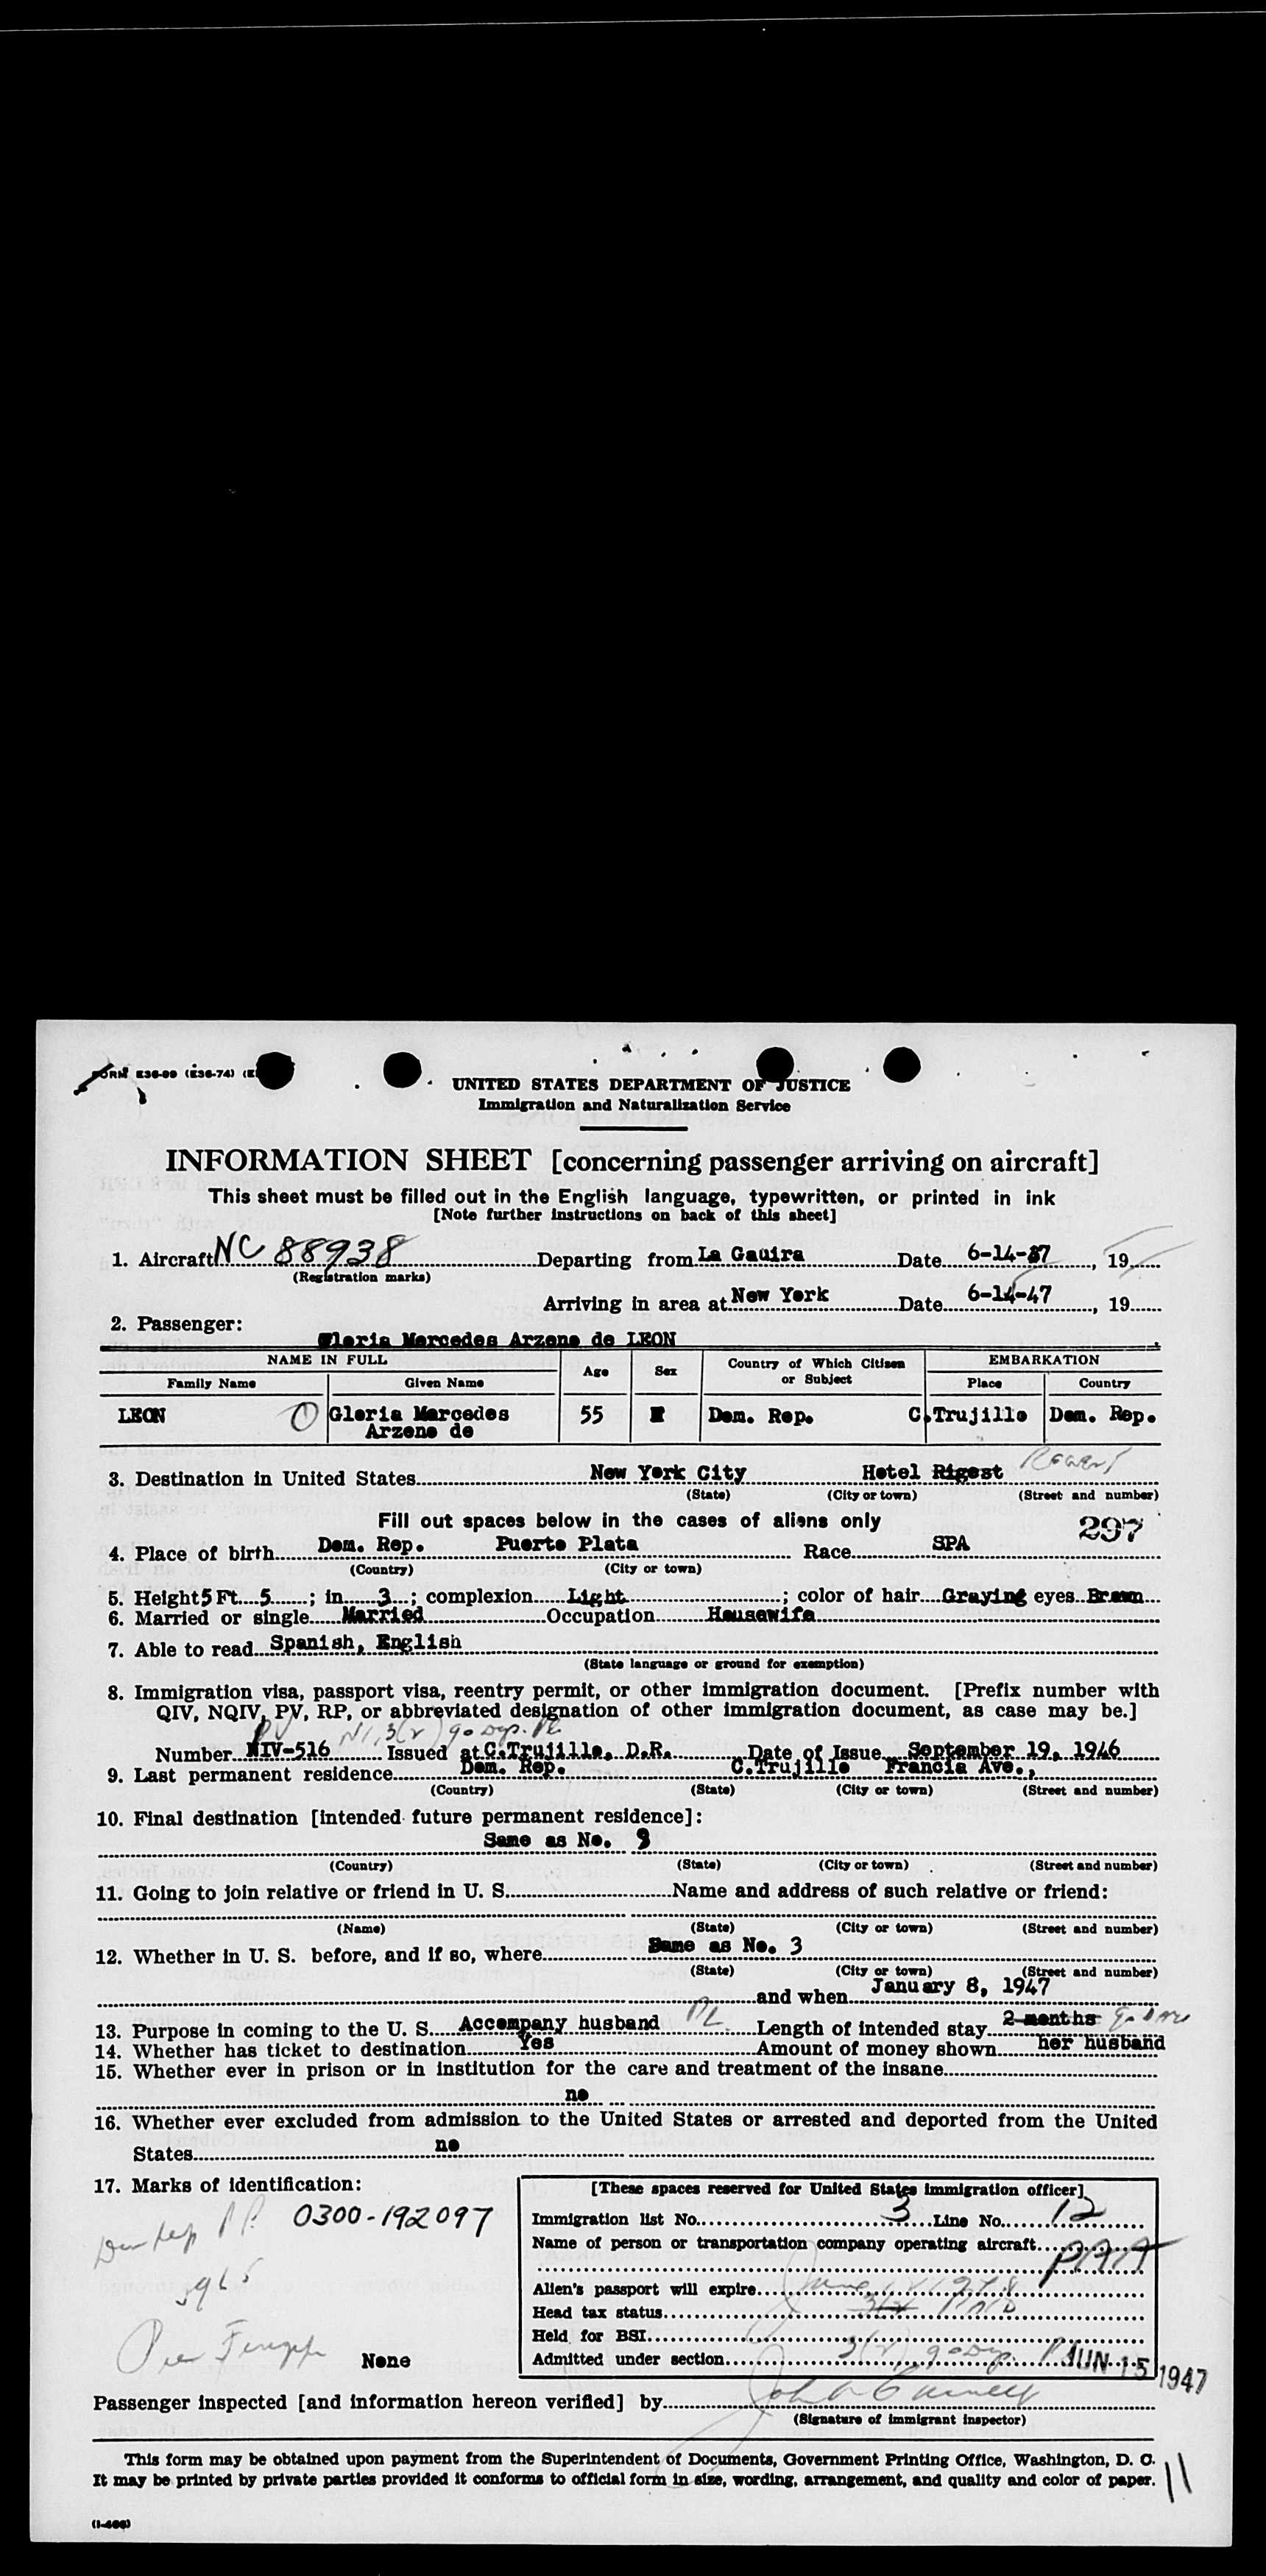 FORM E36-89 (E36-74)
UNITED STATES DEPARTMENT OF JUSTICE
Immigration and Naturalization Service
INFORMATION SHEET [concerning passenger arriving on aircraft]
This sheet must be filled out in the English language, typewritten, or printed in ink
[Note further instructions on back of this sheet]
1. Aircraft NC 88938 Departing from La Gauira Date 6-14-47, 19
(Registration marks)
Arriving in area at New York Date 6-14-47, 19
2. Passenger:
Gloria Mercedes Arzeno de LEON
NAME IN FULL Age Sex Country of Which Citizen or Subject EMBARKATION
Family Name Given Name Place Country
LEON Gloria Mercedes 55 F Dom. Rep. C.Trujillo Dom. Rep.
Arzeno de
3. Destination in United States New York City Hotel Rigest
(State) (City or town) (Street and number)
Fill out spaces below in the cases of aliens only 297
4. Place of birth Dom. Rep. Puerto Plata Race SPA
(Country) (City or town)
5. Height 5 Ft. 5 ; in 3 ; complexion Light ; color of hair Graying eyes Brown
6. Married or single Married Occupation Housewife
7. Able to read Spanish, English
(State language or ground for exemption)
8. Immigration visa, passport visa, reentry permit, or other immigration document. [Prefix number with
QIV, NQIV, PV, RP, or abbreviated designation of other immigration document, as case may be.]
PV 3(2) 90 dys. PL
Number NIV-516 Issued at C.Trujillo, D.R. Date of Issue September 19, 1946
9. Last permanent residence Dom. Rep. C.Trujillo Francia Ave.,
(Country) (State) (City or town) (Street and number)
10. Final destination [intended future permanent residence]:
Same as No. 9
(Country) (State) (City or town) (Street and number)
11. Going to join relative or friend in U. S. Name and address of such relative or friend:
(Name) (State) (City or town) (Street and number)
12. Whether in U. S. before, and if so, where Same as No. 3
(State) (City or town) (Street and number)
and when January 8, 1947
13. Purpose in coming to the U. S. Accompany husband PL Length of intended stay 2 months
14. Whether has ticket to destination Yes Amount of money shown her husband
15. Whether ever in prison or in institution for the care and treatment of the insane
no
16. Whether ever excluded from admission to the United States or arrested and deported from the United
States no
17. Marks of identification:
0300-192097
None
[These spaces reserved for United States immigration officer]
Immigration list No. 3 Line No. 12
Name of person or transportation company operating aircraft
PAA
Alien's passport will expire
Head tax status
Held for BSI
Admitted under section 3(2) 90 dys. JUN 15 1947
Passenger inspected [and information hereon verified] by
(Signature of immigrant inspector)
This form may be obtained upon payment from the Superintendent of Documents, Government Printing Office, Washington, D. C.
It may be printed by private parties provided it conforms to official form in size, wording, arrangement, and quality and color of paper.
11
(I-466)